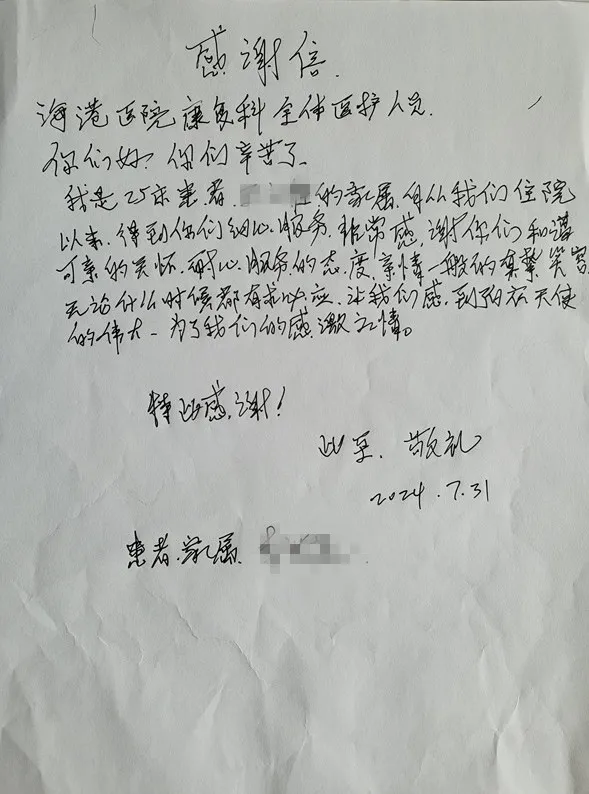 感谢信
海港医院康复科全体医护人员.
你们好.你们辛苦了、
我是25床患者.的家属.自从我们住院
以来.得到你们细心服务.非常感谢你们和蔼
可亲的关怀.耐心服务的态度.亲情一般的笑容
无论什么时候都有求必应.让我们感到白衣天使
的伟大、为了我们的感激之情。
特此感谢!
此至.敬礼
2024.7.31
患者.家属.